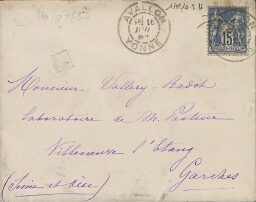 AVALLON
YONNE
15
Monsieur Vallery-Radot
laboratoire de M. Pasteur
Villeneuve l'Etang
Garches
(Seine et Oise)